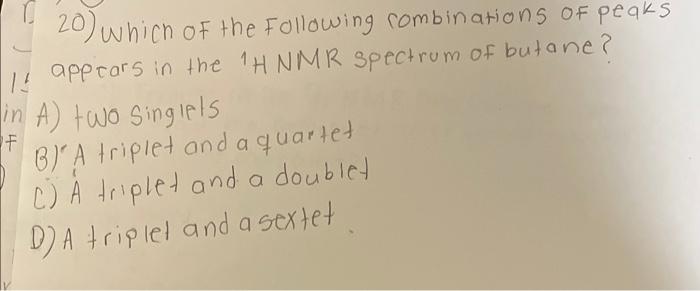 20) which of the following combinations of peaks
appears in the ¹H NMR spectrum of butane?
in A) two singlets
B) A triplet and a quartet
C) A triplet and a doublet
D) A triplet and a sextet.